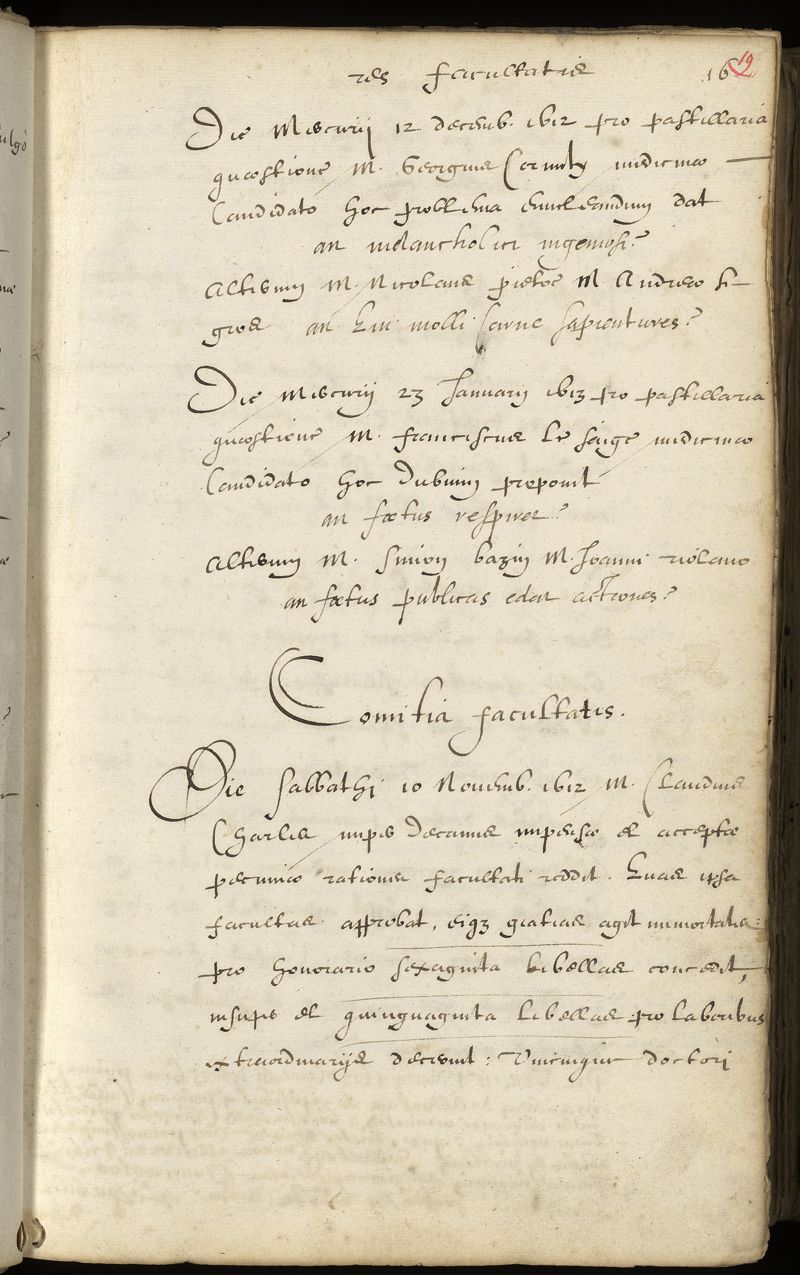 res facultatis 16 19
Die Mercurij 12 decemb. 1612 pro pastillaria
quæstione M. Georgius Cornuty medicinæ
Candidato hoc problema enucleandum dat
an melancholici ingeniosi?
Alterum M. Nicolaus pietre M. Andreæ
an qui molli carne sapientiores?
Die Mercurij 23 Januarij 1613 pro pastillaria
quæstione M. franciscus le feige medicinæ
Candidato hoc Dubium proponit
an fœtus respiret?
Alterum M. simon bazin M. Joanni riolano
an fœtus publicas edat actiones?
Comitia facultatis.
Die sabbathi 10 Novemb. 1612 M. Claudius
Charles nuper Decanus impensæ et acceptæ
pecuniæ rationes facultati reddit. Quas ipsa
facultas approbat, eiq3 gratias agit immortales:
pro honorario sexaginta libellas concedit,
insuper et quinquaginta libellas pro laboribus
extraordinarijs decernit: Unicuique doctori